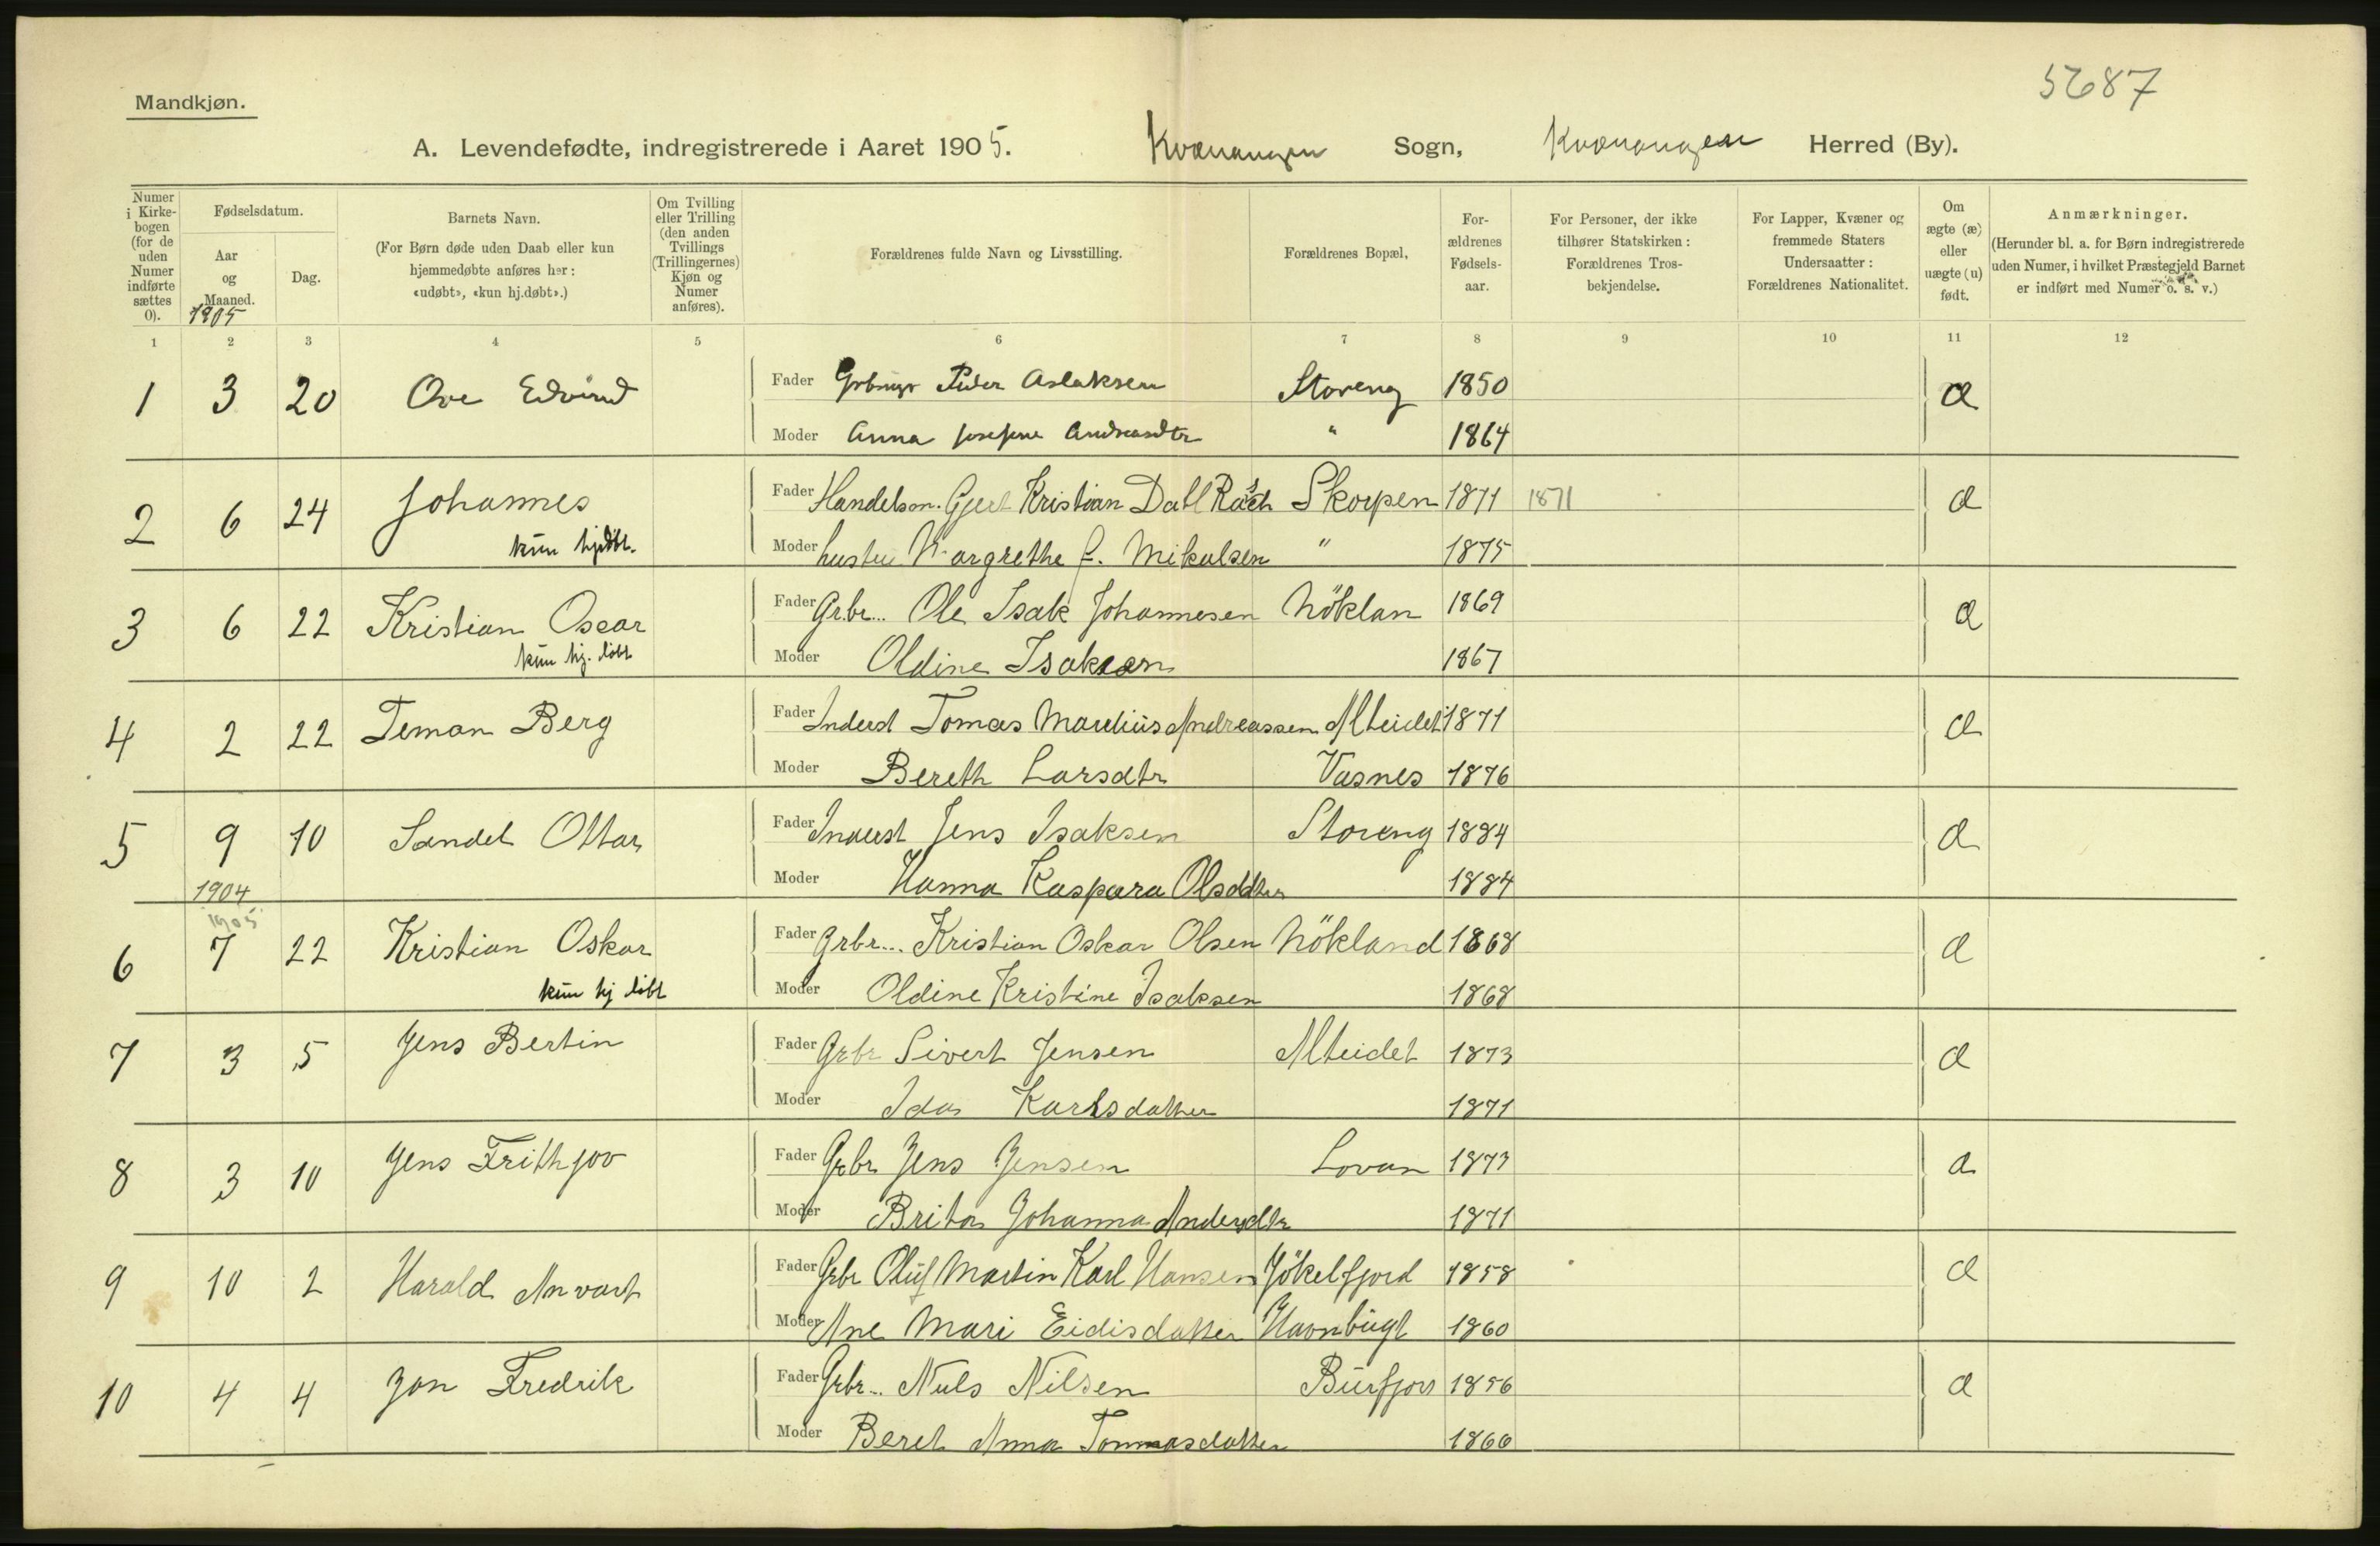 5687
Mandkjøn.
A. Levendefødte, indregistrerede i Aaret 1905. Kvænangen Sogn, Kvænangen Herred (By).
Numer i Kirkebogen (for de uden Numer indførte sættes 0).
Fødselsdatum.
Aar og Maaned.
1905
Dag.
Barnets Navn.
(For Børn døde uden Daab eller kun hjemmedøbte anføres her: «udøbt», «kun hj.døbt».)
Om Tvilling eller Trilling (den anden Tvillings (Trillingernes) Kjøn og Numer anføres).
Forældrenes fulde Navn og Livsstilling.
Forældrenes Bopæl,
Forældrenes Fødselsaar.
For Personer, der ikke tilhører Statskirken: Forældrenes Trosbekjendelse.
For Lapper, Kvæner og fremmede Staters Undersaatter: Forældrenes Nationalitet.
Om ægte (æ) eller uægte (u) født.
Anmærkninger.
(Herunder bl. a. for Børn indregistrerede uden Numer, i hvilket Præstegjeld Barnet er indført med Numer o. s. v.)
1 2 3 4 5 6 7 8 9 10 11 12
1 3 20 Ove Edvind Fader Peder Aslaksen Storeng 1850 æ
Moder Anna Josefine Andreasdtr " 1864
2 6 24 Johannes Fader Handelsm. Gjert Kristian Dall Rasch Skorpen 1871 1871 æ
kun hjdøbt. Moder hustru Margrethe f. Mikalsen " 1875
3 6 22 Kristian Oscar Fader Grbr... Ole Isak Johannesen Nöklan 1869 æ
kun hj. döbt Moder Oldine Isaksen 1867
4 2 22 Teman Berg Fader Inderst Tomas Mareliüs Andreassen Alteidet 1871 æ
Moder Bereth Larsdtr Vasnes 1876
5 9 10 Sandel Ottar Fader Inderst Jens Isaksen Storeng 1884 æ
1904 Moder Hanna Kaspara Olsdatter 1884
1905
6 7 22 Kristian Oskar Fader Grbr... Kristian Oskar Olsen Nökland 1868 æ
kun hj döbt Moder Oldine Kristine Isaksen 1868
7 3 5 Jens Bertin Fader Grbr Sivert Jensen Alteidet 1873 æ
Moder Ida Karlsdatter 1871
8 3 10 Jens Frithjov Fader Grbr Jens Jensen Lovan 1873 æ
Moder Brita Johanna Andersdtr 1871
9 10 2 Harald Anvart Fader Grbr Olüf Martin Karl Hansen Jökelfjord 1858 æ
Moder Ane Mari Eidisdatter Havnbügt 1860
10 4 4 Jon Fredrik Fader Grbr... Nils Nilsen Bürfjord 1856 æ
Moder Beret Anna Tommasdatter 1866